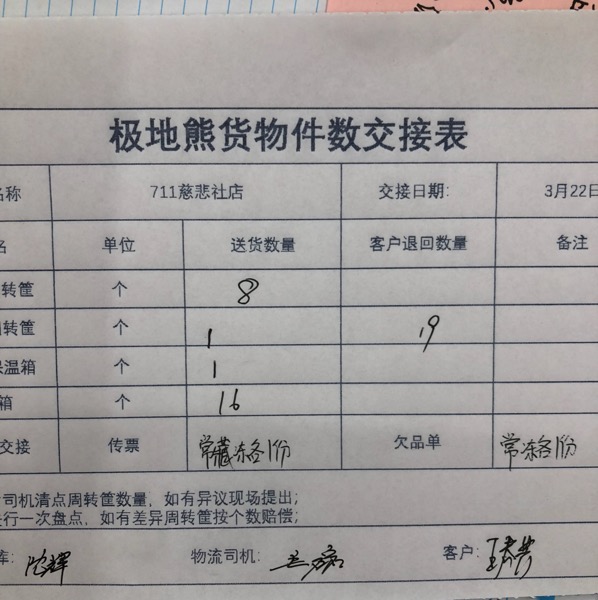 极地熊货物件数交接表
名称 711慈悲社店 交接日期: 3月22日
名 单位 送货数量 客户退回数量 备注
转筐 个 8
转筐 个 1 19
保温箱 个 1
箱 个 16
交接 传票 常藏冻各1份 欠品单 常冻各1份
司机清点周转筐数量，如有异议现场提出;
进行一次盘点，如有差异周转筐按个数赔偿;
库: 物流司机: 客户: